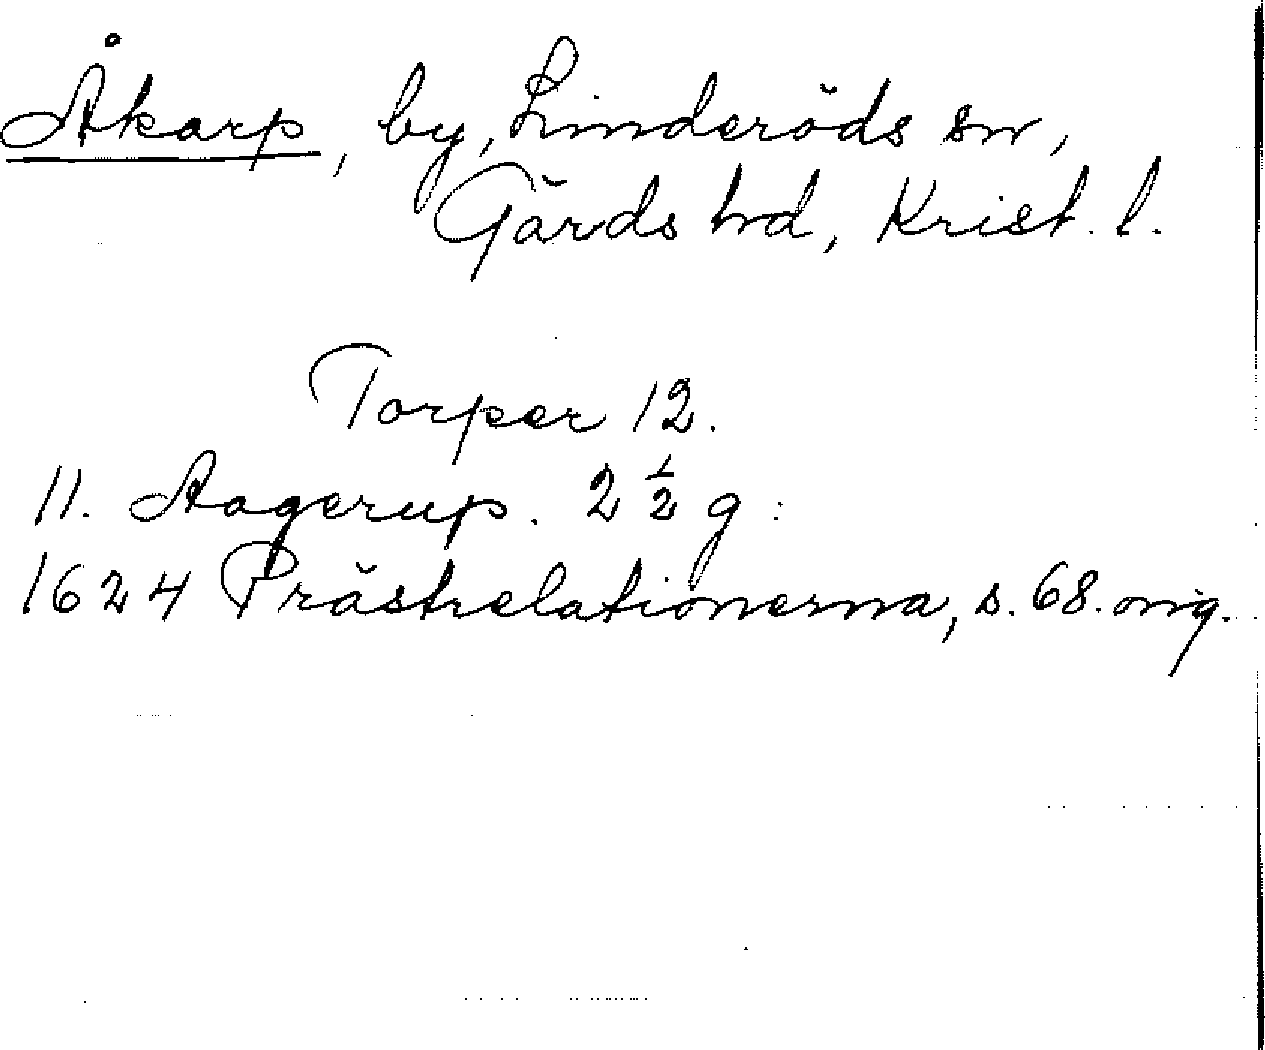 Åkarp, by, Linderöds sn,
Gärds hd, Krist. l.
Torper 12.
11. Aagerup. 2 1/2 g:
1624 Prästrelationerna, s. 68. orig.